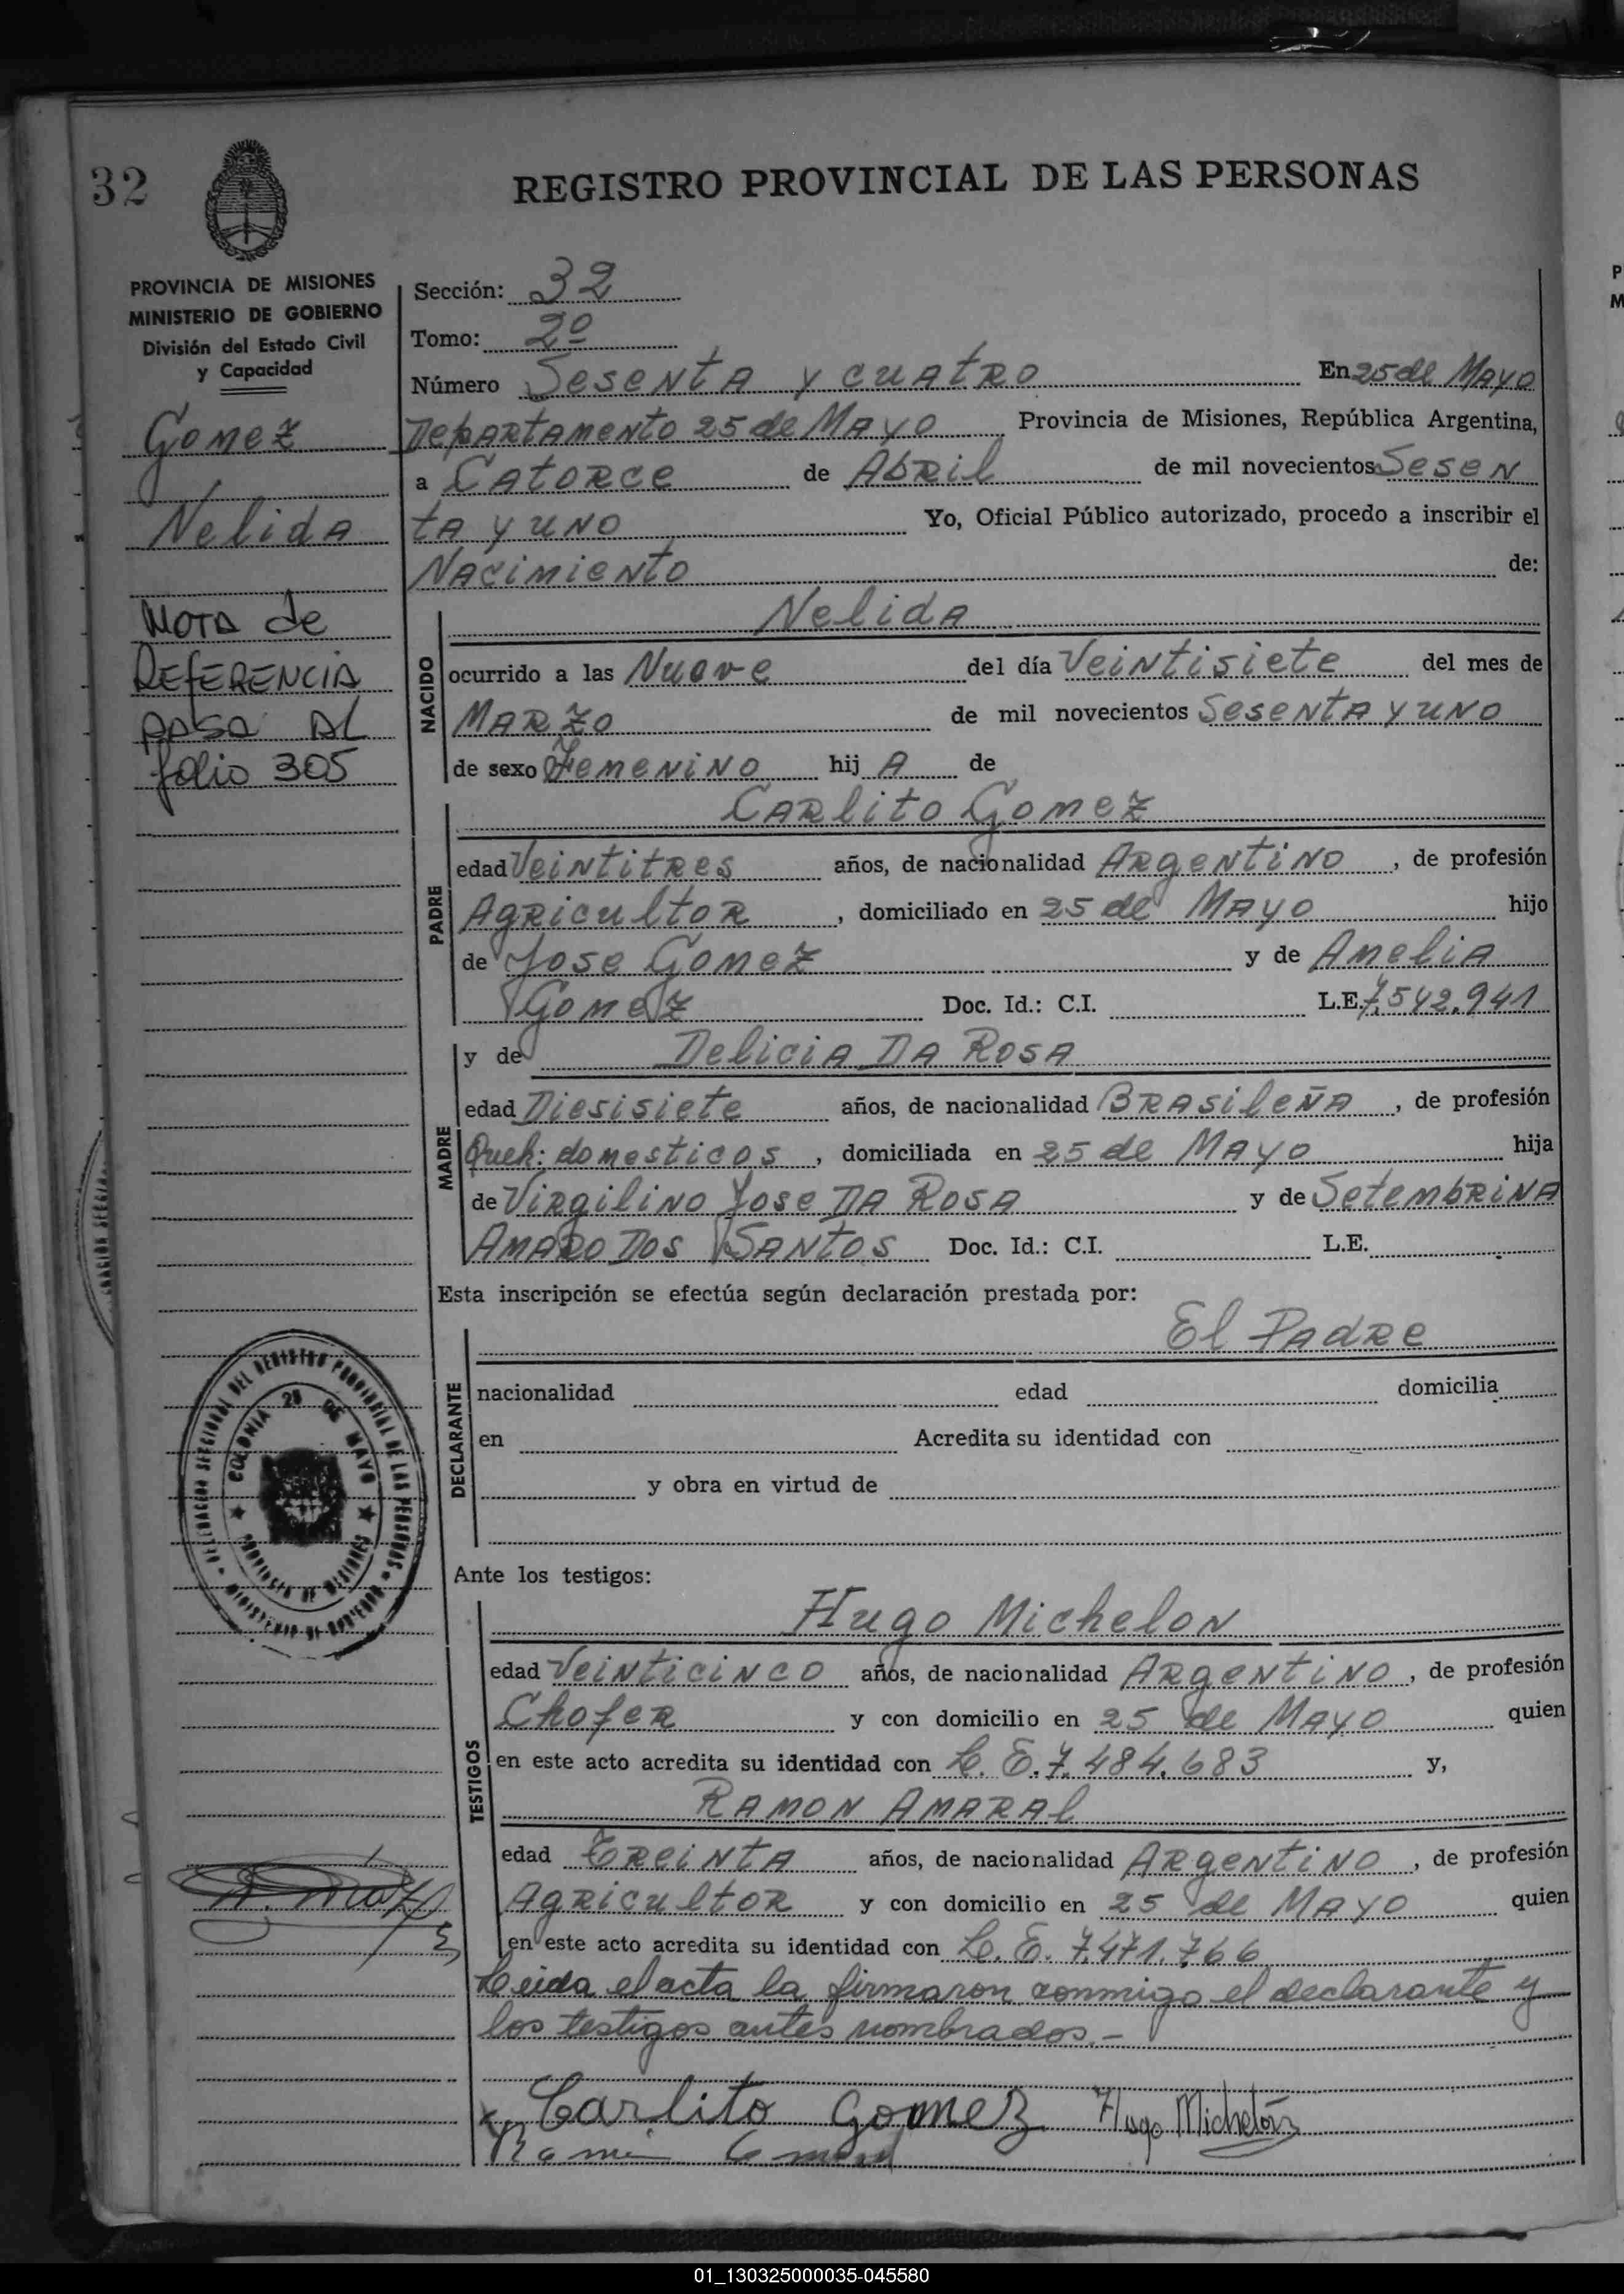 32
REGISTRO PROVINCIAL DE LAS PERSONAS
PROVINCIA DE MISIONES
MINISTERIO DE GOBIERNO
División del Estado Civil
y Capacidad
Gomez
Nelida
NOTA de
REFERENCIA
PASA AL
folio 305
Sección: 32
Tomo: 2º
Número Sesenta y cuatro En 25 de Mayo
Departamento 25 de Mayo Provincia de Misiones, República Argentina,
a Catorce de Abril de mil novecientos Sesen
ta y uno Yo, Oficial Público autorizado, procedo a inscribir el
Nacimiento de:
NACIDO
Nelida
ocurrido a las Nueve del día Veintisiete del mes de
Marzo de mil novecientos Sesenta y uno
de sexo Femenino hij A de
PADRE
Carlito Gomez
edad Veintitres años, de nacionalidad Argentino, de profesión
Agricultor, domiciliado en 25 de Mayo hijo
de Jose Gomez y de Amelia
Gomez Doc. Id.: C.I. L.E. 7.542.941
MADRE
y de Delicia Da Rosa
edad Diesisiete años, de nacionalidad Brasileña, de profesión
Queh: domesticos, domiciliada en 25 de Mayo hija
de Virgilino Jose Da Rosa y de Setembrina
Amaro Dos Santos Doc. Id.: C.I. L.E.
Esta inscripción se efectúa según declaración prestada por:
DECLARANTE
El Padre
nacionalidad edad domicilia
en Acredita su identidad con
y obra en virtud de
Ante los testigos:
TESTIGOS
Hugo Michelon
edad Veinticinco años, de nacionalidad Argentino, de profesión
Chofer y con domicilio en 25 de Mayo quien
en este acto acredita su identidad con L. E. 7.484.683 y,
Ramon Amaral
edad Treinta años, de nacionalidad Argentino, de profesión
Agricultor y con domicilio en 25 de Mayo quien
en este acto acredita su identidad con L. E. 7.471.766
Leida el acta la firmaron conmigo el declarante y
los testigos antes nombrados.-
x Carlito Gomez Hugo Michelón
DELEGACION SECCIONAL DEL REGISTRO PROVINCIAL DE LAS PERSONAS
COLONIA 25 DE MAYO
PROVINCIA DE MISIONES
MINISTERIO DE GOBIERNO
01_130325000035-045580